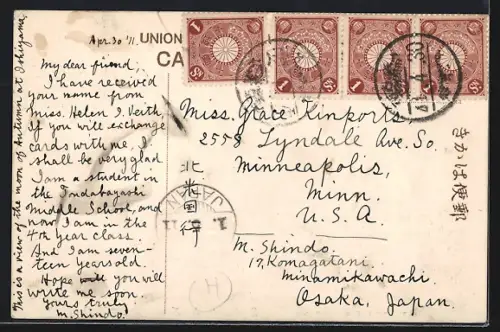 Apr. 30 '11.
UNION
CA
My dear friend;
I have received
your name from
Miss. Helen I. Veith,
If you will exchange
cards with me, I
shall be very glad.
I am a student in
the Tondabayashi
Middle School, and
now I am in the
4th year class.
And I am seven-
teen years old.
Hope will you will
write me soon.
yours truly
M. Shindo.
This is a view of the moon of Autumn at Ishiyama
Miss. Grace Kinports
2558 Lyndale Ave. So.
Minneapolis,
Minn.
U. S. A.
M. Shindo.
17, Komagatani
Minamikawachi
Osaka, Japan.
北米国行
きかは便郵
JAPAN
(H)
1
1
1